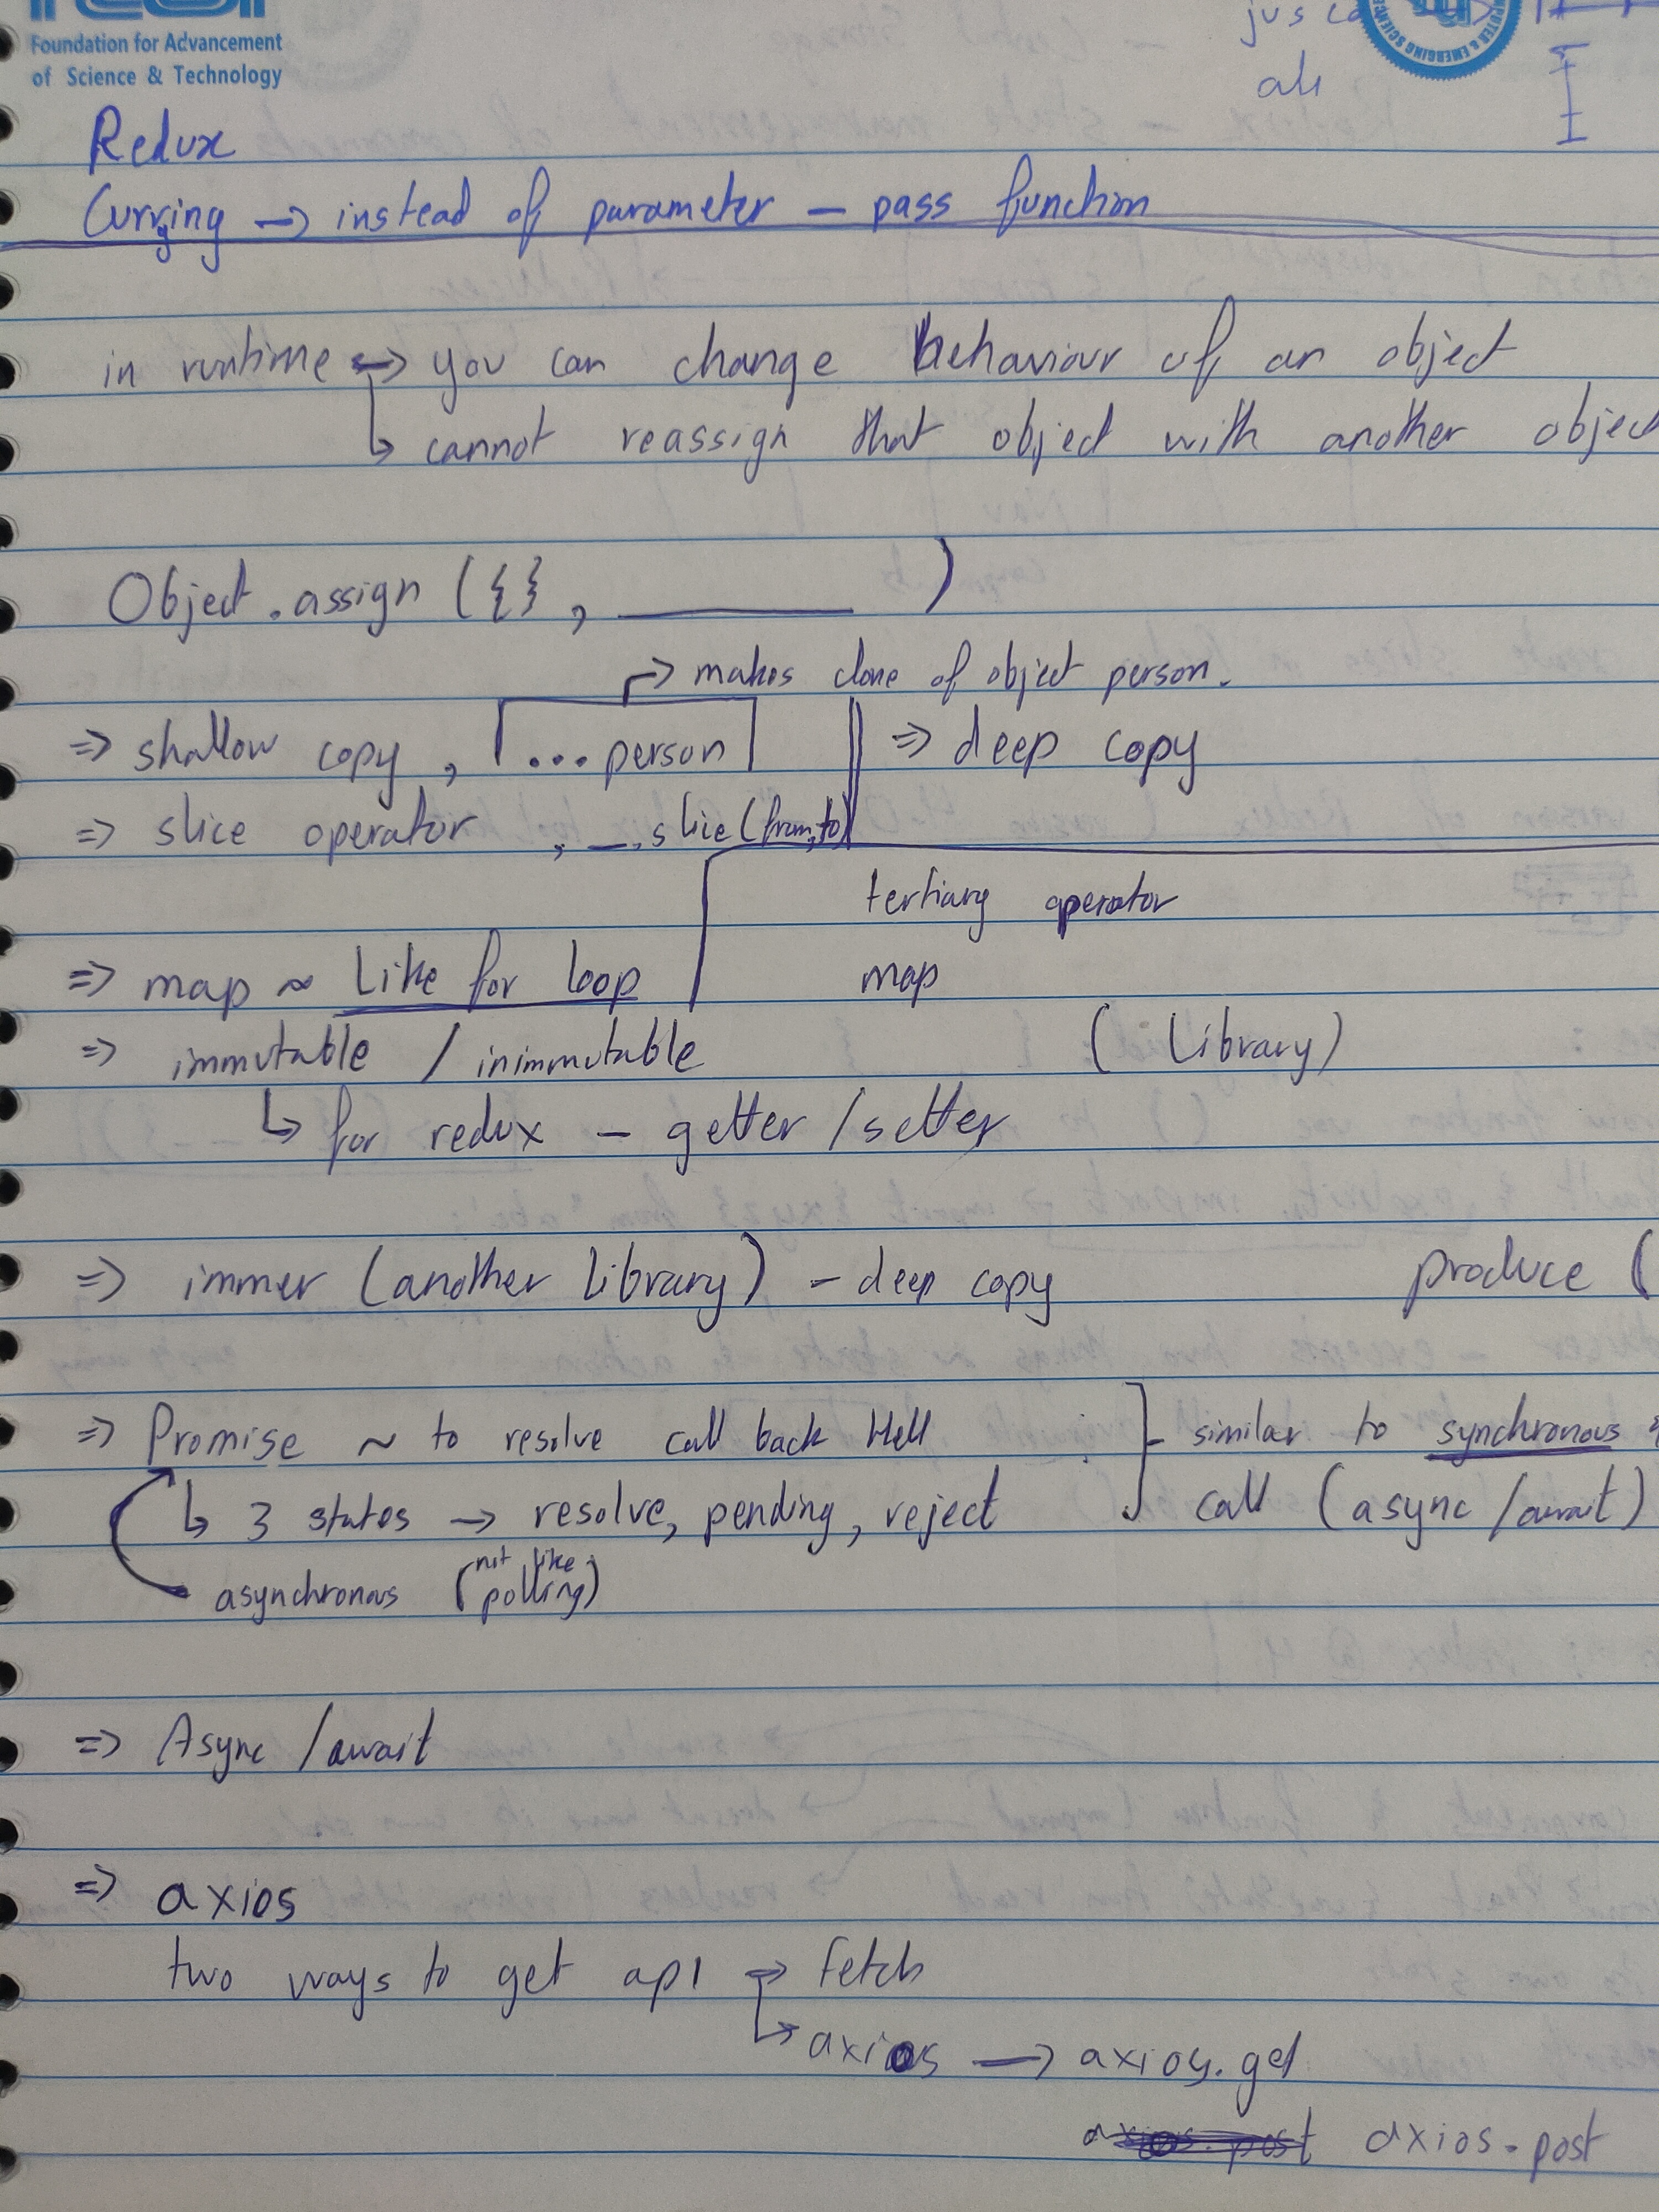 Foundation for Advancement
of Science & Technology
ali
Redux
Currying → instead of parameter – pass function
in runtime → you can change behaviour of an object
↳ cannot reassign that object with another object
Object.assign ({}, ______ )
↱ makes clone of object person.
⇒ shallow copy, ...person ⇒ deep copy
⇒ slice operator, _.slice(from,to)
tertiary operator
⇒ map ~ Like for loop
map
⇒ immutable / inimmutable (Library)
↳ for redux – getter/setter
⇒ immer (another library) – deep copy produce (
⇒ Promise ~ to resolve call back Hell } similar to synchronous
↳ 3 states → resolve, pending, reject call (async/await)
asynchronous (not like polling)
⇒ Async/await
⇒ axios
two ways to get api → fetch
↳ axios → axios.get
axios.post axios.post